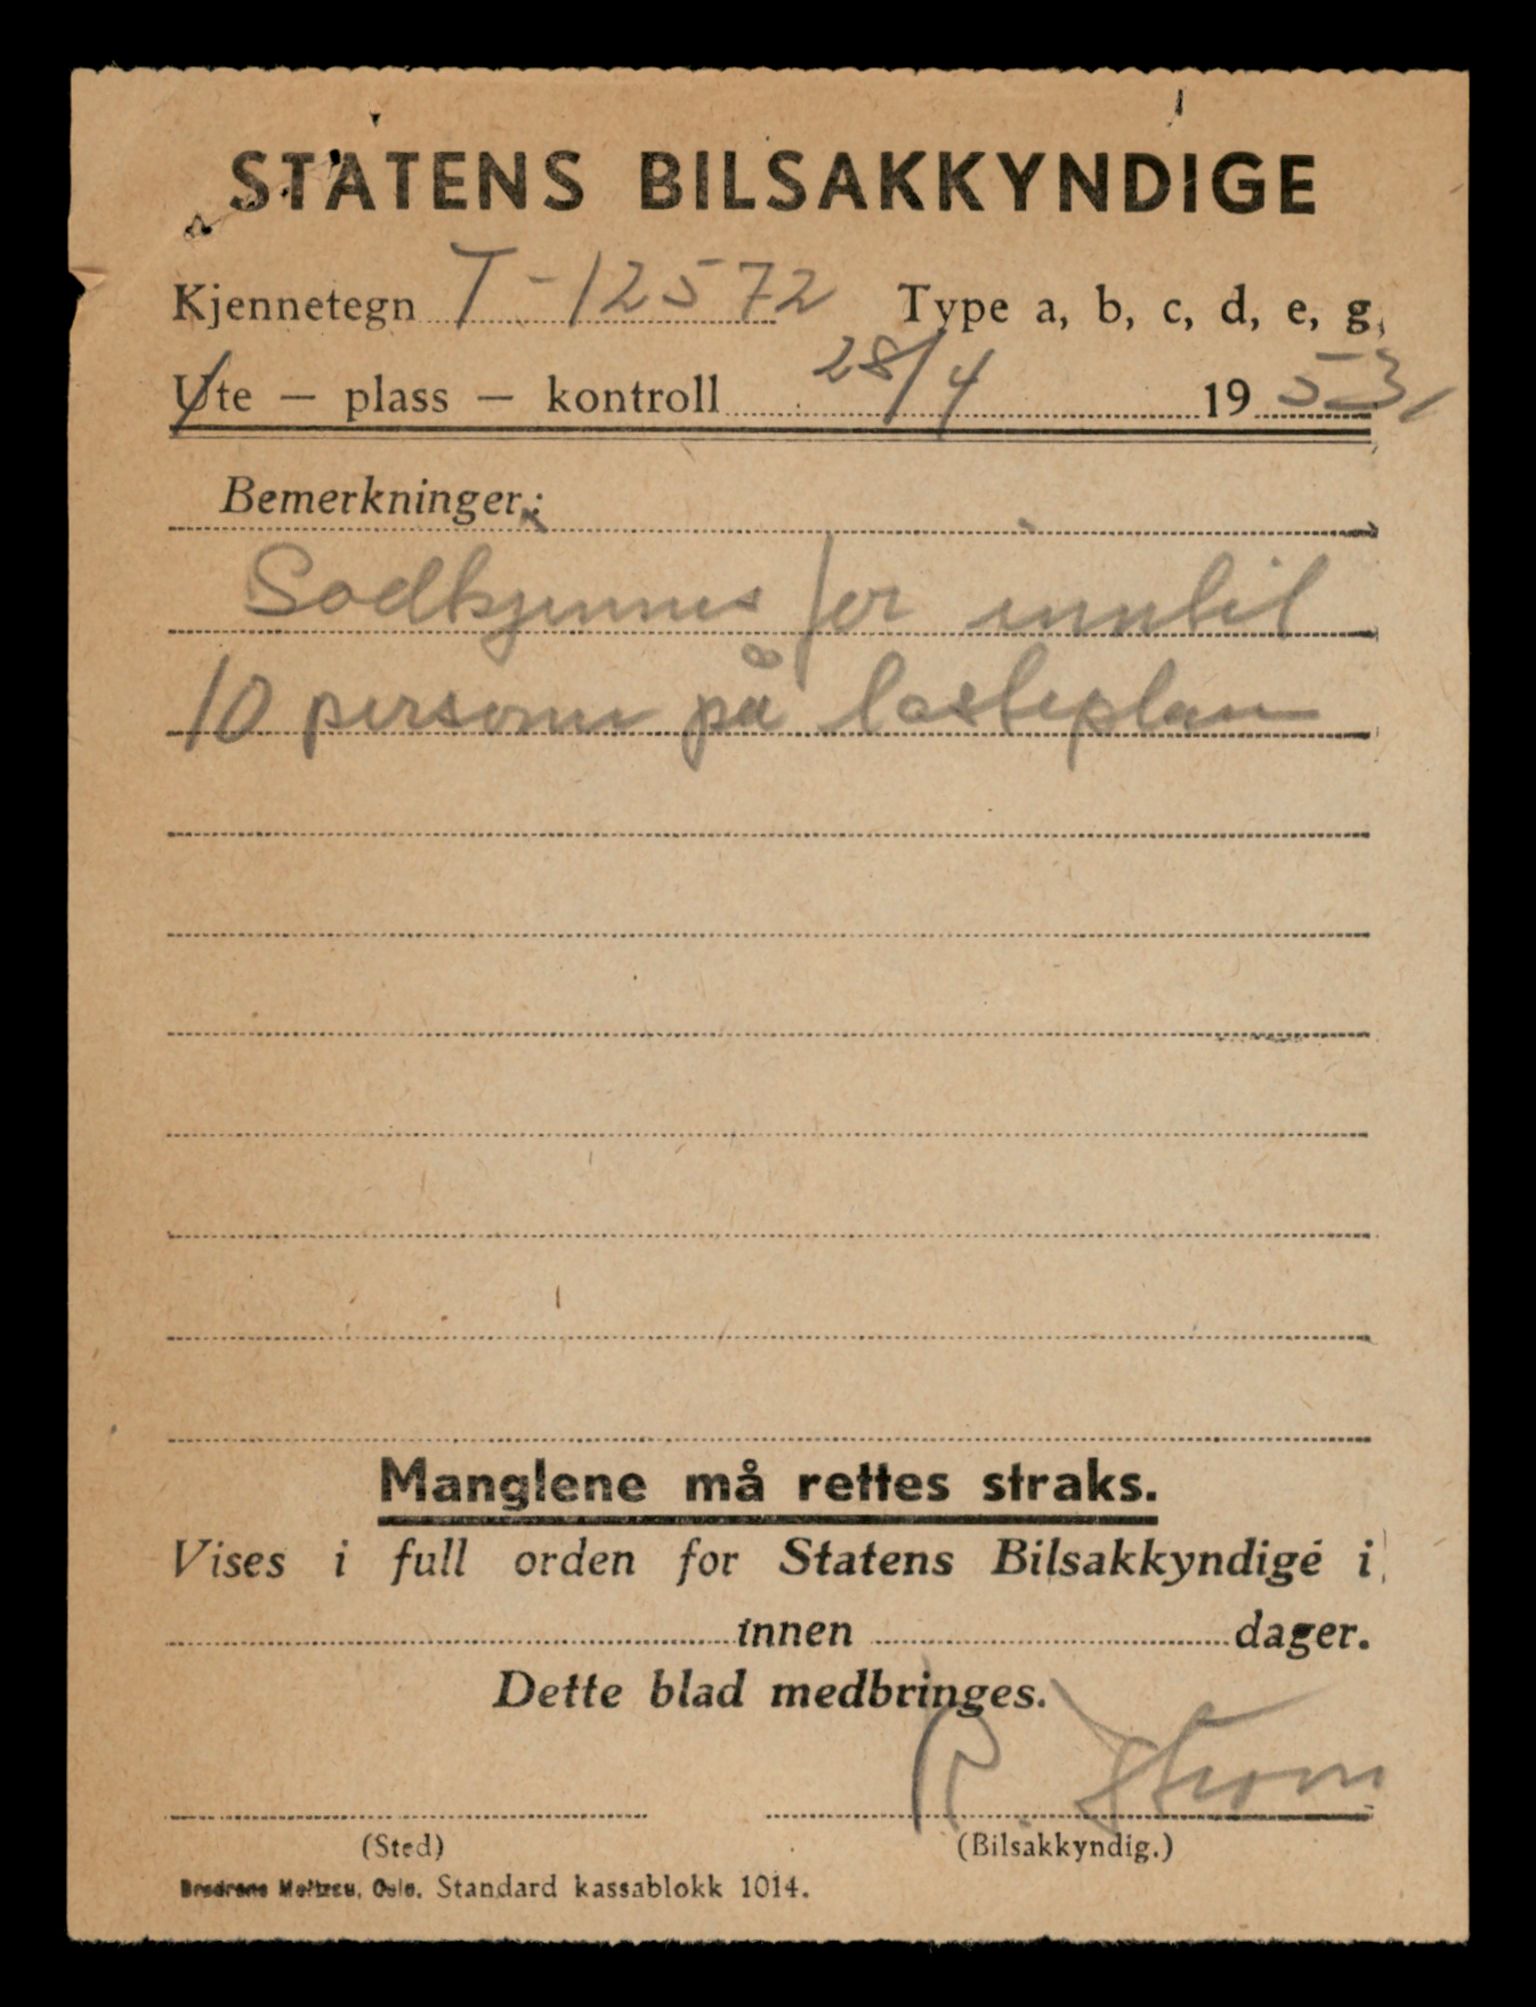 STATENS BILSAKKYNDIGE
Kjennetegn T-12572 Type a, b, c, d, e, g,
Ute — plass — kontroll 28/4 1953,
Bemerkninger:
Godkjennes for inntil
10 personer på lasteplan
Manglene må rettes straks.
Vises i full orden for Statens Bilsakkyndige i
innen dager.
Dette blad medbringes.
R. Strøm
(Sted) (Bilsakkyndig.)
Oslo. Standard kassablokk 1014.